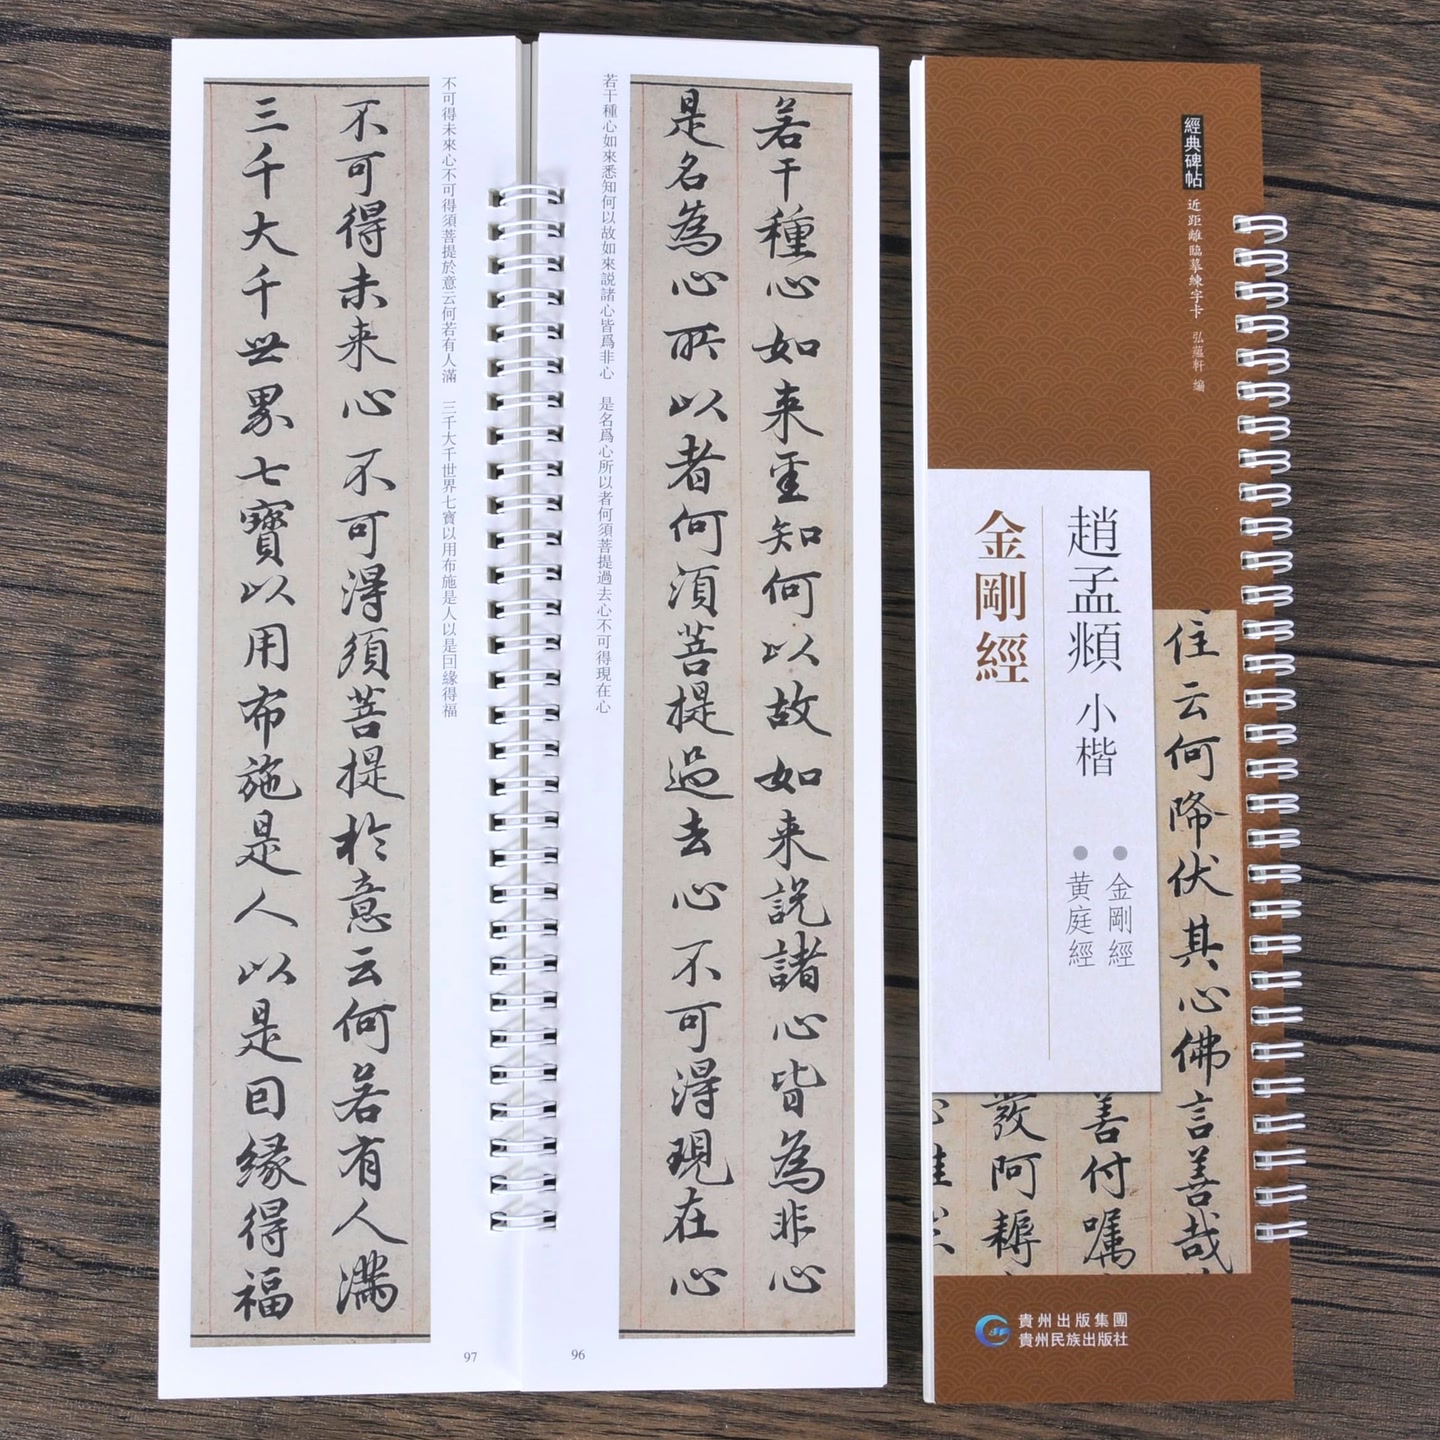 若干種心如来悉知何以故如来説諸心皆為非心
是名為心所以者何須菩提過去心不可得現在心
若干種心如來悉知何以故如來説諸心皆爲非心　是名爲心所以者何須菩提過去心不可得現在心
96
不可得未来心不可得須菩提於意云何若有人滿
三千大千世界七寶以用布施是人以是囙緣得福
不可得未來心不可得須菩提於意云何若有人滿　三千大千世界七寶以用布施是人以是囙緣得福
97
經典碑帖
近距離臨摹練字卡
弘蘊軒 編
趙孟頫 小楷
金剛經
金剛經
黃庭經
住云何降伏其心佛言善哉
善付嘱
發阿耨
貴州出版集團
貴州民族出版社